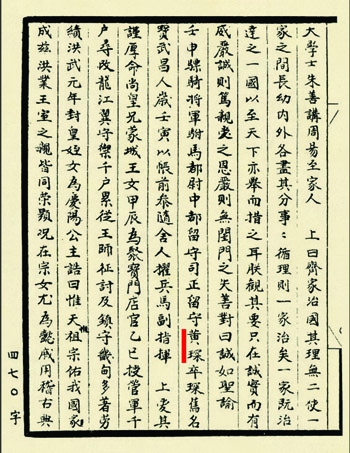 大學士朱善講周易至家人　上曰齊家治國其理無二使一
家之間長幼內外各盡其分事：循理則一家治矣一家既治
達之一國以至天下亦舉而措之耳朕觀其要只在誠實而有
威嚴誠則篤親愛之恩嚴則無閨門之失善對曰誠如聖諭
壬申驃騎將軍駙馬都尉中都留守司正留守黃琛卒琛舊名
寶武昌人歲壬寅以帳前參隨舍人擢兵馬副指揮　上愛其
謹厚命尚皇兄蒙城王女甲辰為聚寶門店官乙巳授管軍千
戶尋改龍江翼守禦千戶累從王師征討及鎮守畿甸多著勞
績洪武元年封皇姪女為慶陽公主誥曰惟天祖宗佑我國家
成茲洪業王室之親皆同榮顯況在宗女尤為懿戚用稽古典
四七〇字